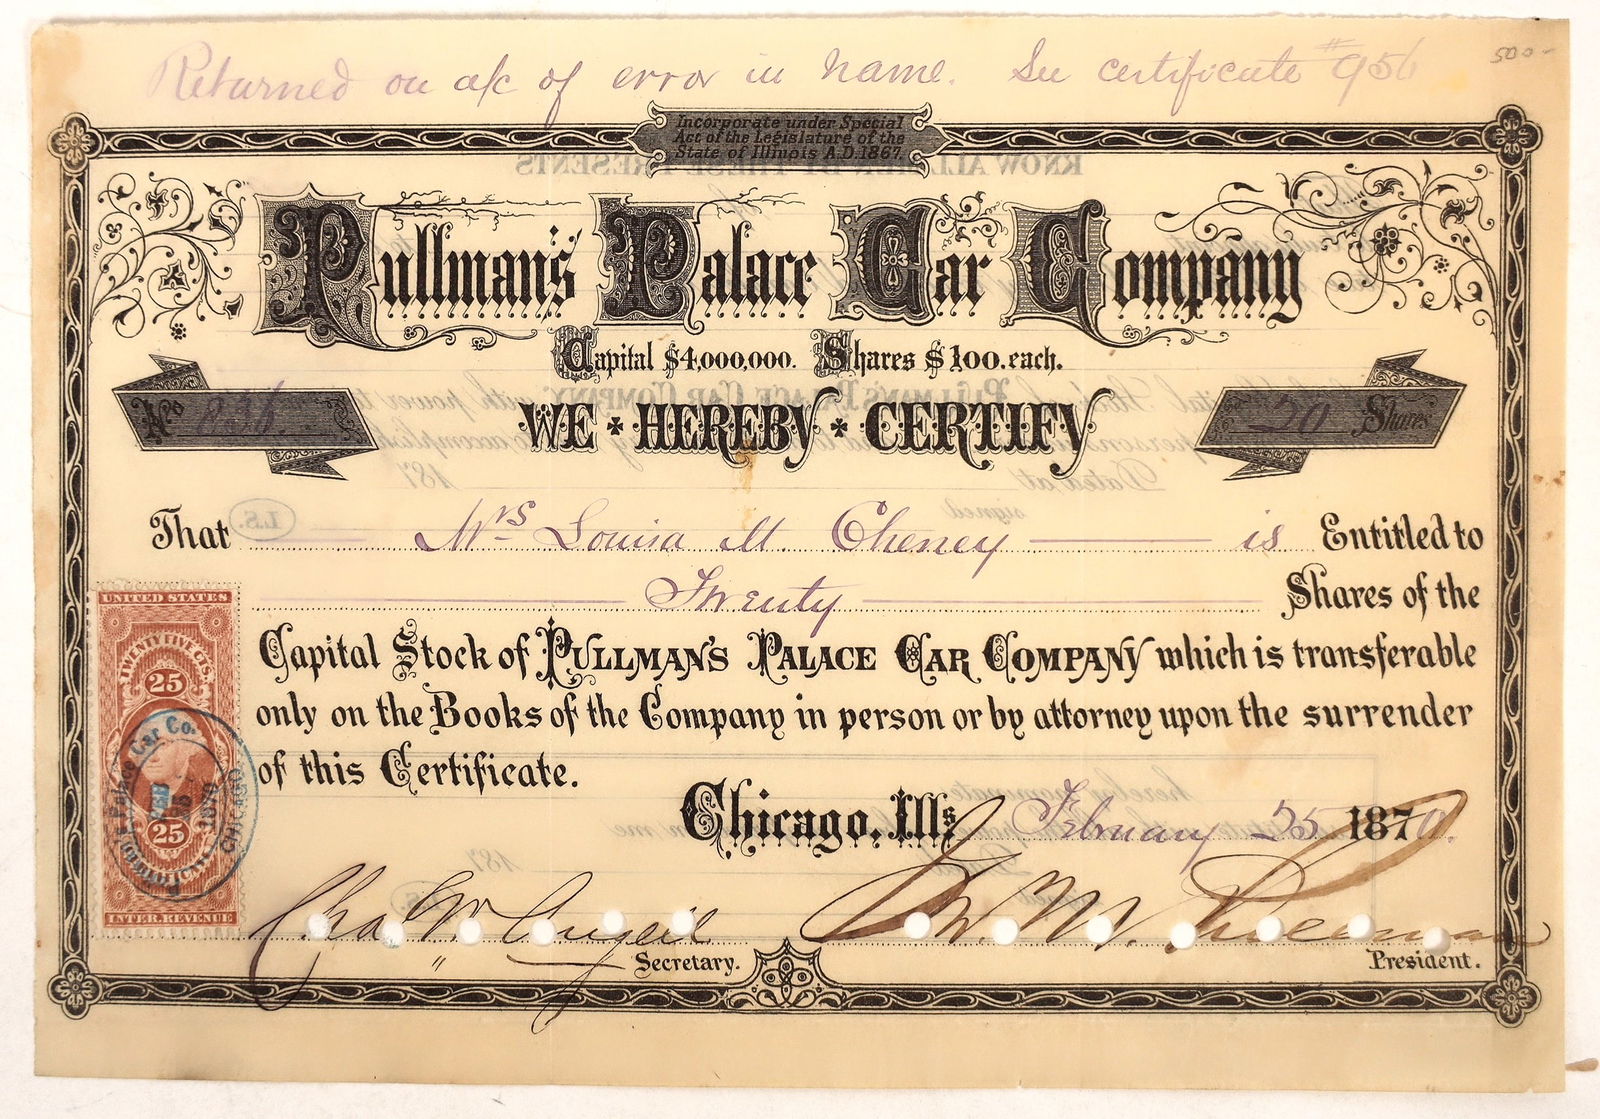 Returned on a/c of error in name. See certificate #956
500-
Incorporate under Special
Act of the Legislature of the
State of Illinois A.D. 1867.
Pullman's Palace Car Company
Capital $4,000,000. Shares $100. each.
No 836. WE HEREBY CERTIFY 20 Shares
That Mrs Louisa M. Cheney is Entitled to
Twenty Shares of the
Capital Stock of PULLMAN'S PALACE CAR COMPANY which is transferable
only on the Books of the Company in person or by attorney upon the surrender
of this Certificate.
Chicago, Ills. February 25 1870.
Chas. W. Angell Secretary.
Geo. M. Pullman President.
UNITED STATES
TWENTY FIVE CTS.
25
25
INTER. REVENUE
Pullman's Palace Car Co.
FEB
1870
CHICAGO
KNOW ALL MEN BY THESE PRESENTS
PULLMAN'S PALACE CAR COMPANY with power
Dated at 187
signed
L.S.
hereby nominate
187